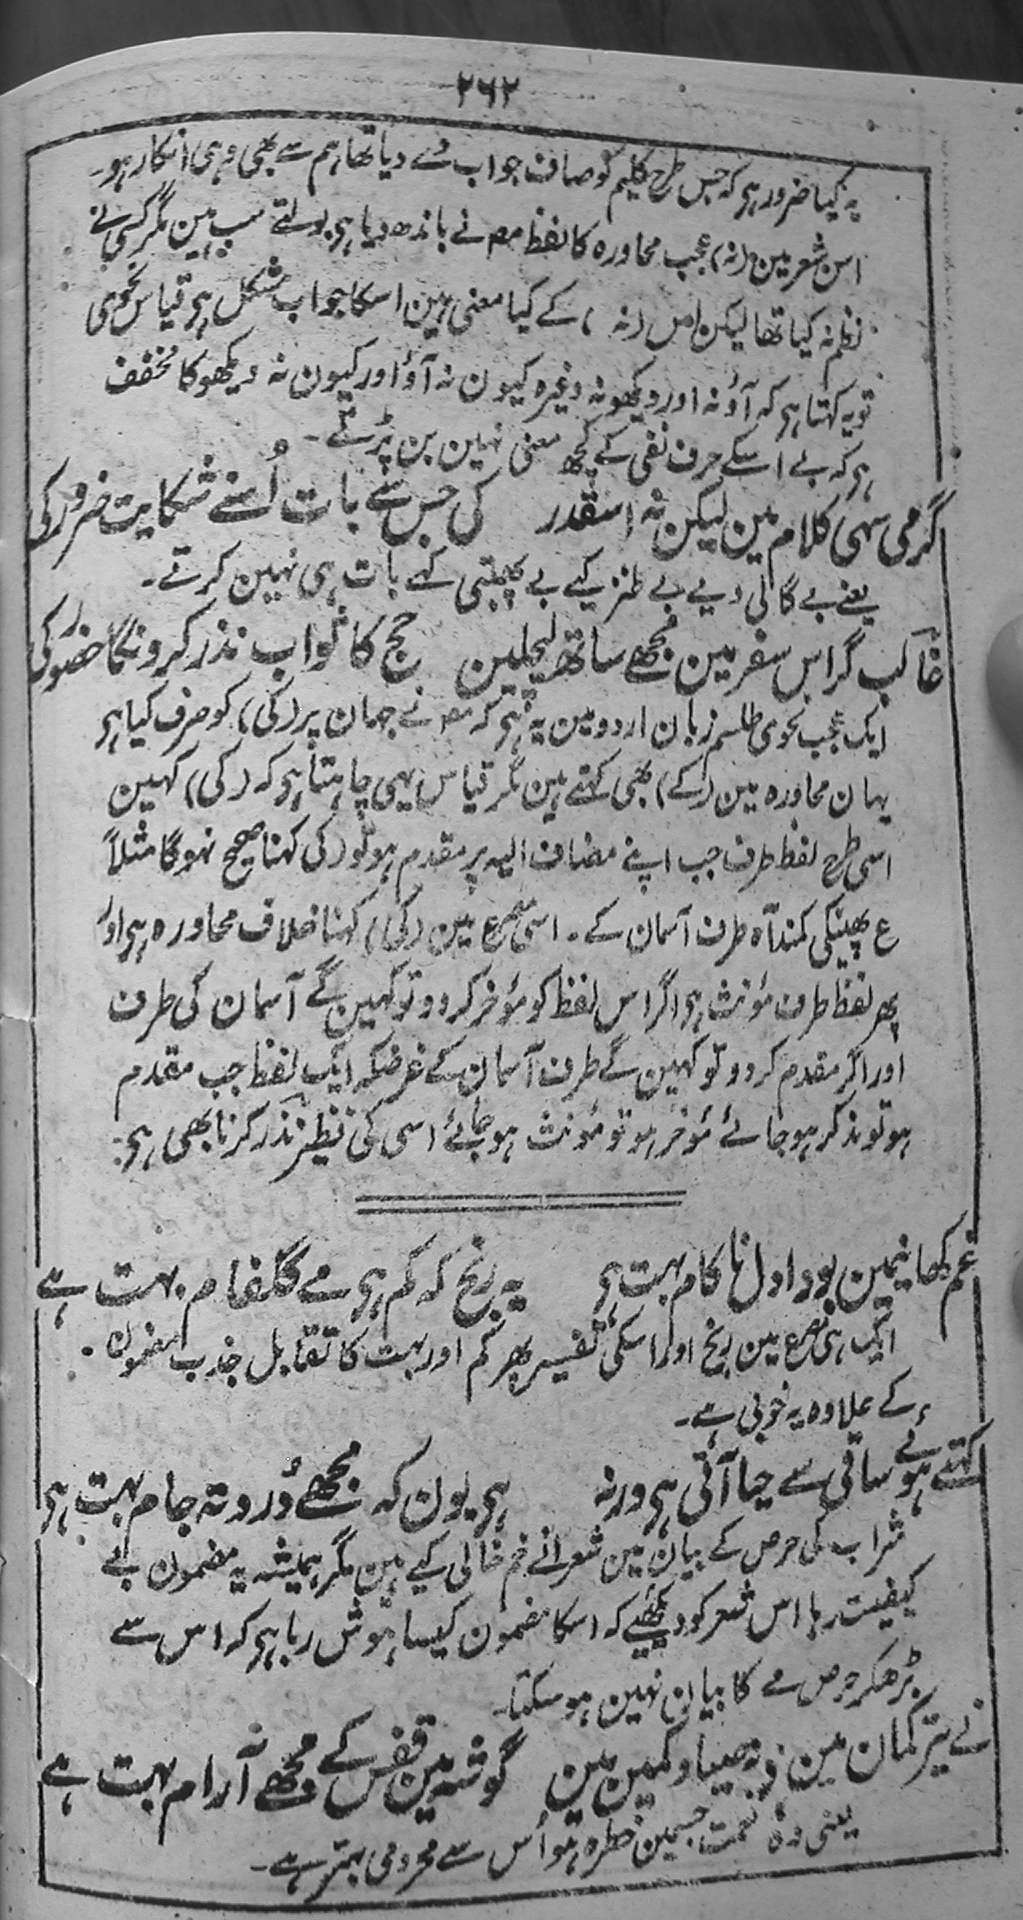 ۲۶۲
یہ کیا ضرور ہی کہ جس طرح کلیم کو صاف جواب دے دیا تھا ہم سے بھی وہی انکار ہو۔
اس شعر مین (نہ) عجب محاورہ کا لفظ مصہ نے باندھ دیا ہی بولتے سب ہین مگر کسی نے
نظم نہ کیا تھا لیکن اس (نہ) کے کیا معنی ہین اسکا جواب مشکل ہی قیاس نحوی
تو یہ کہتا ہی کہ آؤ نہ اور دیکھو نہ وغیرہ کیون نہ آؤ اور کیون نہ دیکھو کا مخفف
ہی کہ بے اسکے حرف نفی کے کچھ معنی نہین بن پڑتے۔
گرمی سہی کلام مین لیکن نہ اسقدر کی جس سے بات اُسنے شکایت ضرور کی
یعنے بے گالی دیے بے طنز کیے بے پھبتی کہے بات ہی نہین کرتے۔
غالب گر اس سفر مین مجھے ساتھ لیچلین حج کا ثواب نذر کرونگا حضور کی
ایک عجب نحوی طلسم زبان اردو مین یہ ہی کہ مصہ نے جہان پر (کی) کو صرف کیا ہی
یہان محاورہ مین (کے) بھی کہتے ہین مگر قیاس یہی چاہتا ہی کہ (کی) کہین
اسی طرح لفظ طرف جب اپنے مضاف الیہ پر مقدم ہو تو (کی کہنا صحیح نہوگا مثلاً
ع پھینکی کمند آہ طرف آسمان کے۔ اسی مصرع مین (کی) کہنا خلاف محاورہ ہی اور
پھر لفظ طرف مؤنث ہی اگر اس لفظ کو مؤخر کر دو تو کہین گے آسمان کی طرف
اور اگر مقدم کر دو تو کہین گے طرف آسمان کے غرضکہ ایک لفظ جب مقدم
ہو تو مذکر ہو جائے مؤخر ہو تو مؤنث ہو جائے اسی کی نظیر نذر کرنا بھی ہی :
غم کھانیمین بودا دل ناکام بہت ہی یہ رنج کہ کم ہی مے گلفام بہت ہے
ایک ہی مصرع مین رنج اور اسکی تفسیر پھر کم اور بہت کا تقابل جذب مضمون
کے علاوہ یہ خوبی ہے۔
کہتے ہوئے ساقی سے حیا آتی ہی ورنہ ہی یون کہ مجھے دُرد تہ جام بہت ہی
شراب کی حرص کے بیان مین شعرا نے خم خالی کیے ہین مگر ہمیشہ یہ مضمون بے
کیفیت رہا اس شعر کو دیکھیے کہ اسکا مضمون کیسا ہوش ربا ہی کہ اس سے
بڑھکر حرص مے کا بیان نہین ہو سکتا۔
نے تیر کمان مین ہی نہ صیاد کمین مین گوشہ مین قفس کے مجھے آرام بہت ہے
یعنی وہ نعمت جسمین خطرہ ہو اُس سے محرومی بہتر ہے۔